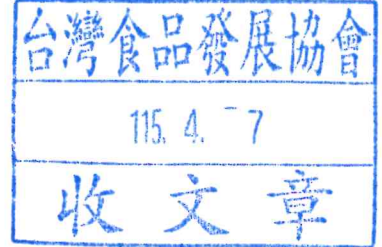 台灣食品發展協會
115. 4. -7
收文章